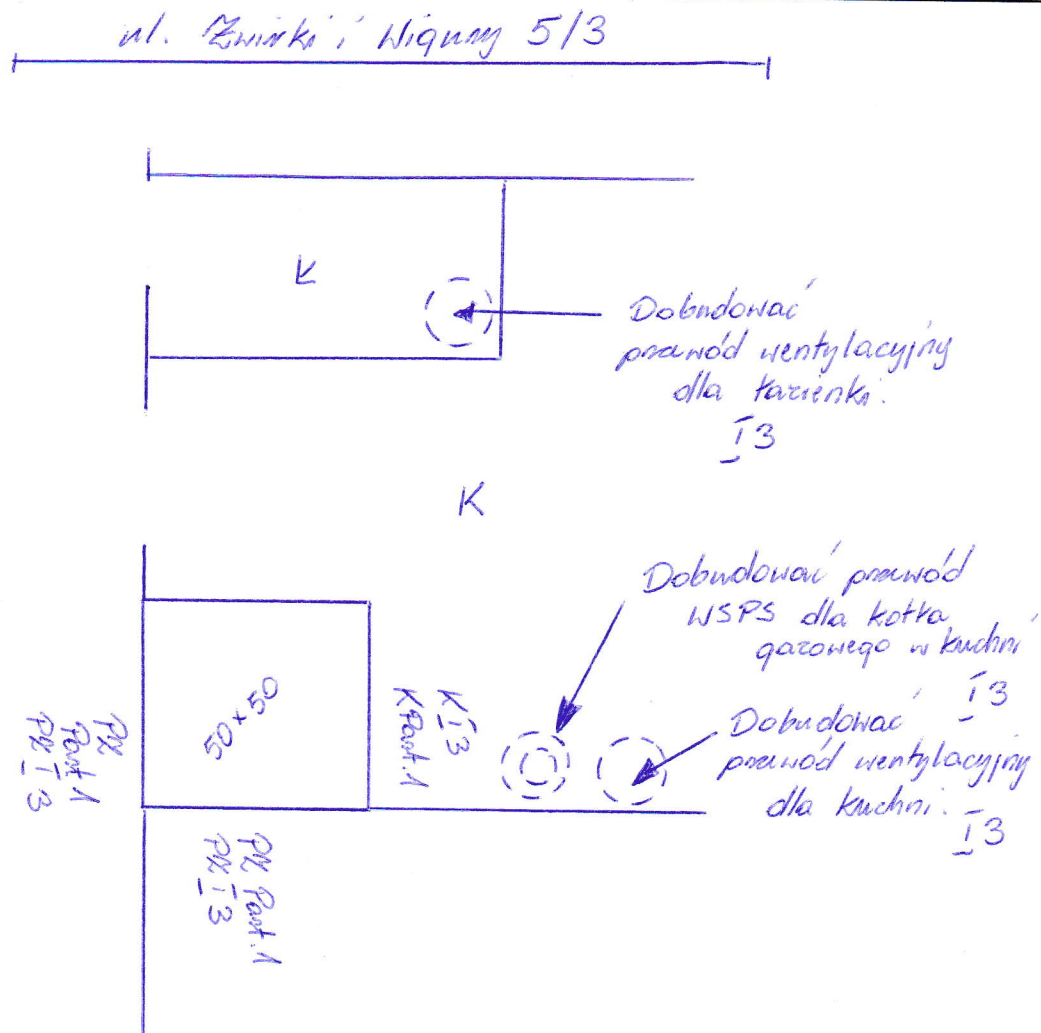 ul. Żwirki i Wigury 5/3
Ł
Dobudować
przewód wentylacyjny
dla łazienki.
I 3
K
Dobudować przewód
WSPS dla kotła
gazowego w kuchni
I 3
50 x 50
K I 3
K Part. 1
Dobudować
przewód wentylacyjny
dla kuchni.
I 3
PZ
Part 1
PZ I 3
PZ Part. 1
PZ I 3